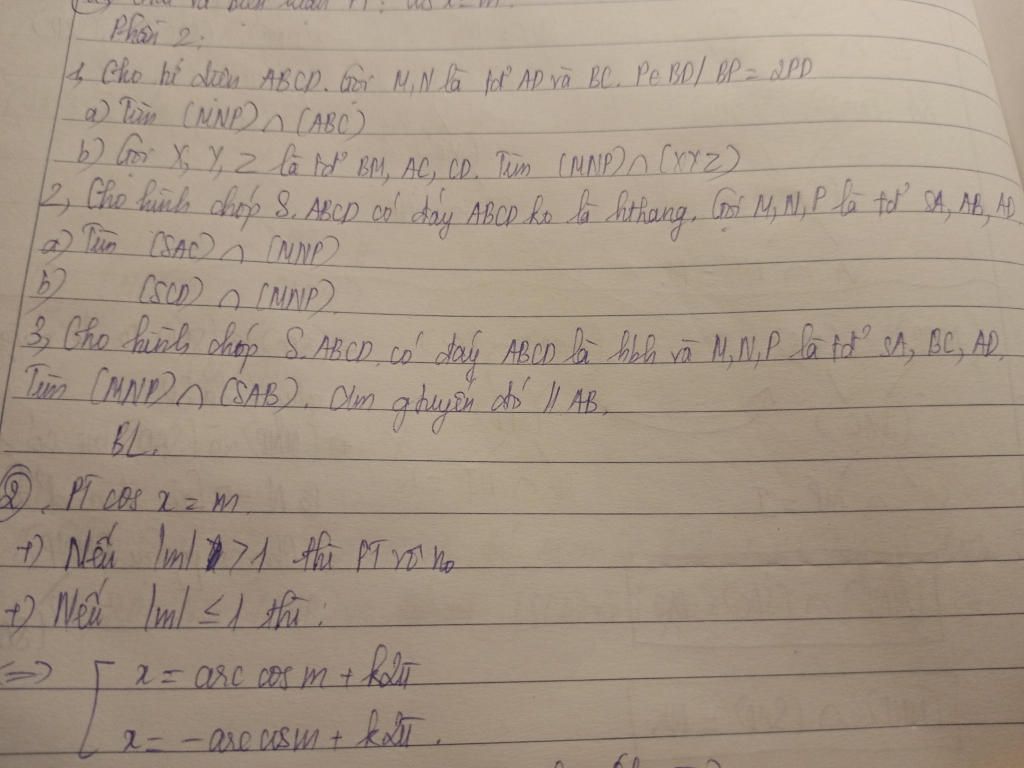 PT: cos x = m.
Phần 2:
1, Cho tứ diện ABCD. Gọi M, N là tđ' AD và BC. P∈BD/ BP = 2PD
a) Tìm (MNP) ∩ (ABC)
b) Gọi X, Y, Z là tđ' BM, AC, CD. Tìm (MNP) ∩ (XYZ)
2, Cho hình chóp S.ABCD có đáy ABCD ko là hthang. Gọi M, N, P là tđ' SA, AB, AD
a) Tìm (SAC) ∩ (MNP)
b) (SCD) ∩ (MNP).
3, Cho hình chóp S.ABCD có đáy ABCD là hbh và M, N, P là tđ' SA, BC, AD.
Tìm (MNP) ∩ (SAB). Cm gtuyến đó // AB.
BL.
②. PT cos x = m.
+) Nếu |m| > 1 thì PT vô no
+) Nếu |m| ≤ 1 thì:
⇔ [ x = arc cos m + k2π
x = -arc cos m + k2π.